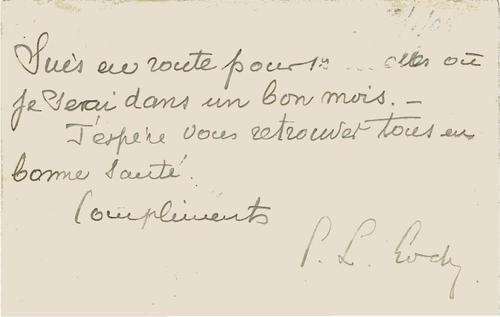 Suis en route pour où
je serai dans un bon mois. –
J'espère vous retrouver tous en
bonne santé.
Compliments
P. L.